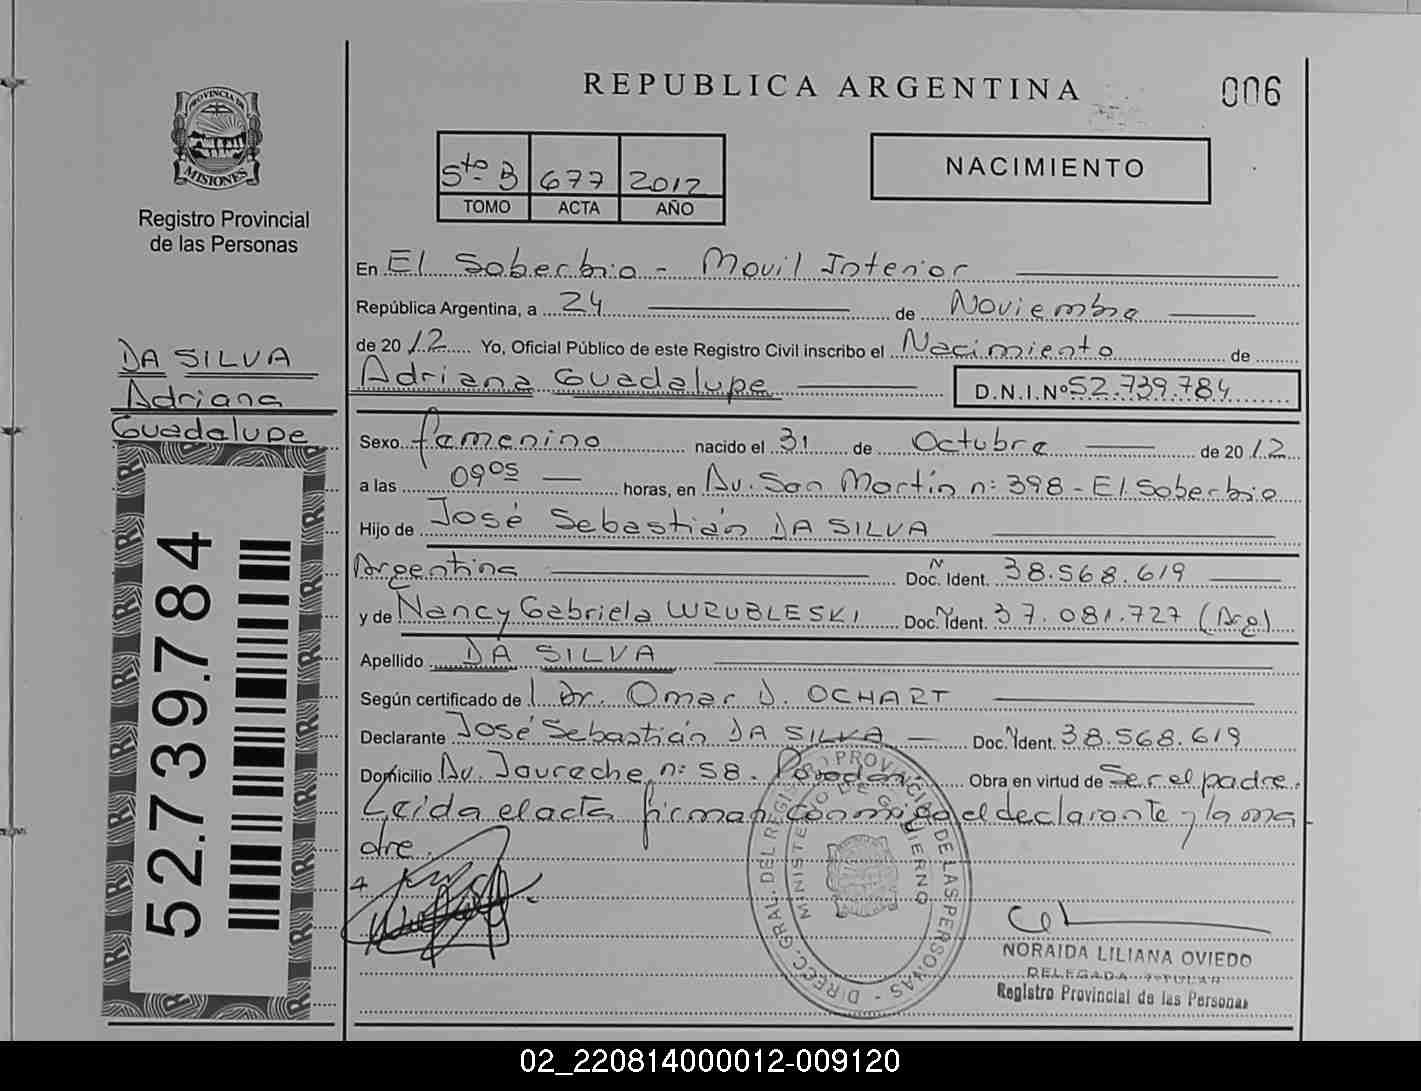 REPUBLICA ARGENTINA
006
PROVINCIA DE
MISIONES
Registro Provincial
de las Personas
5to B 677 2012
TOMO ACTA AÑO
NACIMIENTO
En El Soberbio - Movil Interior
República Argentina, a 24 de Noviembre
de 20 12 Yo, Oficial Público de este Registro Civil inscribo el Nacimiento de
Adriana Guadalupe D.N.I.Nº 52.739.784
DA SILVA
Adriana
Guadalupe
52.739.784
Sexo femenino nacido el 31 de Octubre de 20 12
a las 09 05 horas, en Av. San Martín n: 398 - El Soberbio
Hijo de José Sebastián DA SILVA
Argentina Doc. Ident. N 38.568.619
y de Nancy Gabriela WRUBLESKI Doc. N Ident. 37.081.727 (Arg)
Apellido DA SILVA
Según certificado de l Dr. Omar D. OCHART
Declarante José Sebastián DA SILVA Doc. N Ident. 38.568.619
Domicilio Av. Jaureche n: 58. Obra en virtud de Ser el padre.
Leída el acta firman conmigo el declarante y la ma
dre.
DIRECC. GRAL. DEL REGISTRO PROVINCIAL DE LAS PERSONAS -
MINISTERIO DE GOBIERNO
NORAIDA LILIANA OVIEDO
DELEGADA TITULAR
Registro Provincial de las Personas
02_220814000012-009120